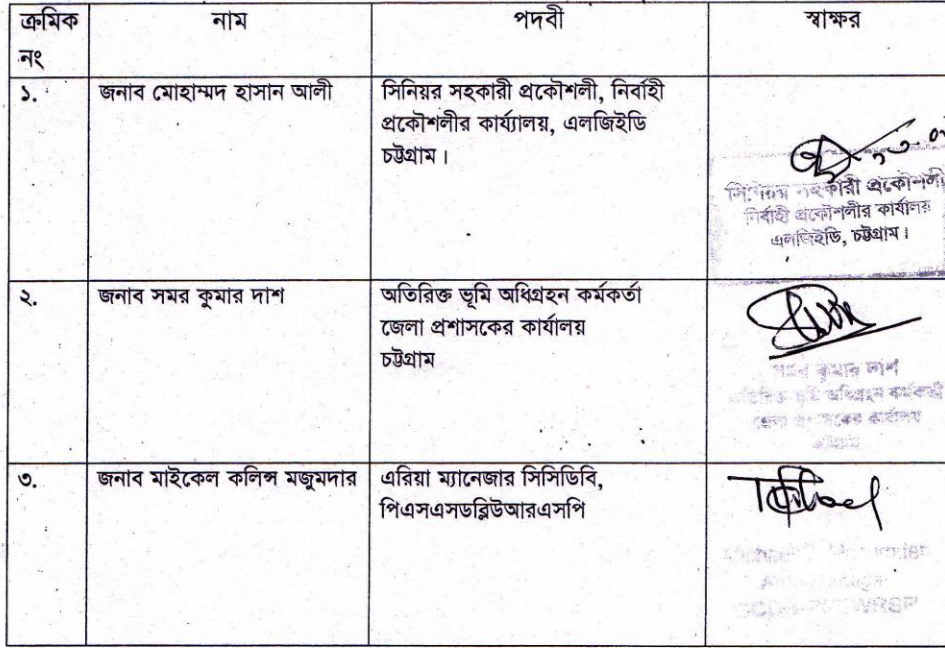 ক্রমিক নং নাম পদবী স্বাক্ষর
১. জনাব মোহাম্মদ হাসান আলী সিনিয়র সহকারী প্রকৌশলী, নির্বাহী
প্রকৌশলীর কার্য্যালয়, এলজিইডি
চট্টগ্রাম।
সিনিয়র সহকারী প্রকৌশলী
নির্বাহী প্রকৌশলীর কার্যালয়
এলজিইডি, চট্টগ্রাম।
২. জনাব সমর কুমার দাশ অতিরিক্ত ভূমি অধিগ্রহন কর্মকর্তা
জেলা প্রশাসকের কার্যালয়
চট্টগ্রাম
সমর কুমার দাশ
অতিরিক্ত ভূমি অধিগ্রহন কর্মকর্তা
জেলা প্রশাসকের কার্যালয়
চট্টগ্রাম
৩. জনাব মাইকেল কলিন্স মজুমদার এরিয়া ম্যানেজার সিসিডিবি,
পিএসএসডব্লিউআরএসপি